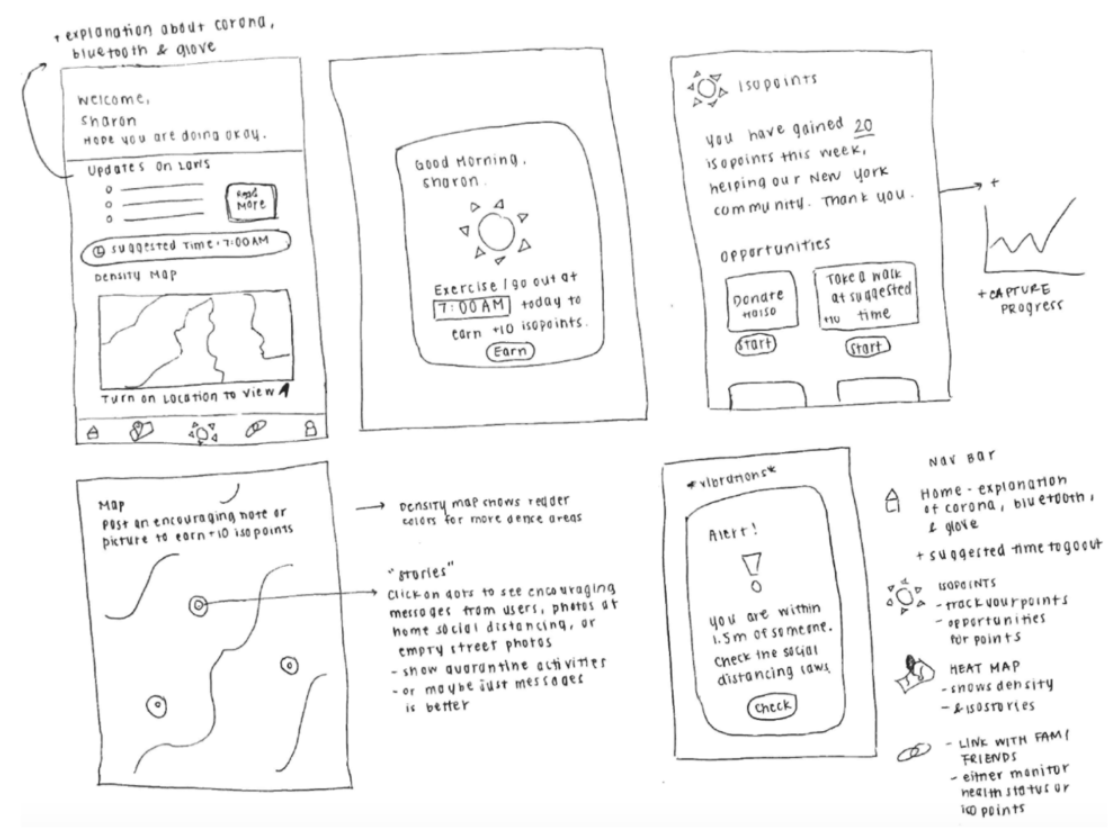 + explanation about corona,
bluetooth & glove
Welcome,
Sharon
Hope you are doing okay.
Updates on Laws
Read
More
Suggested Time · 7:00 AM
Density Map
Turn on Location to View
Good Morning,
Sharon.
Exercise / go out at
7:00 AM today to
earn +10 isopoints.
Earn
isopoints
You have gained 20
isopoints this week,
helping our New York
community. Thank you.
opportunities
Donate
Take a walk
at suggested
+10 time
Start
Start
+
+ CAPTURE
PROGRESS
Map
Post an encouraging note or
picture to earn +10 isopoints
Density map shows redder
colors for more dence areas
"stories"
Click on dots to see encouraging
messages from users, photos at
home social distancing, or
empty street photos
- show quarantine activities
- or maybe just messages
is better
*vibrations*
Alert!
You are within
1.5m of someone.
Check the social
distancing laws.
Check
Nav Bar
Home - explanation
of corona, bluetooth,
& glove
+ suggested time to go out
ISOPOINTS
- track your points
- opportunities
for points
HEAT MAP
- shows density
- & isostories
- LINK WITH FAM/
FRIENDS
- either monitor
health status or
iso points